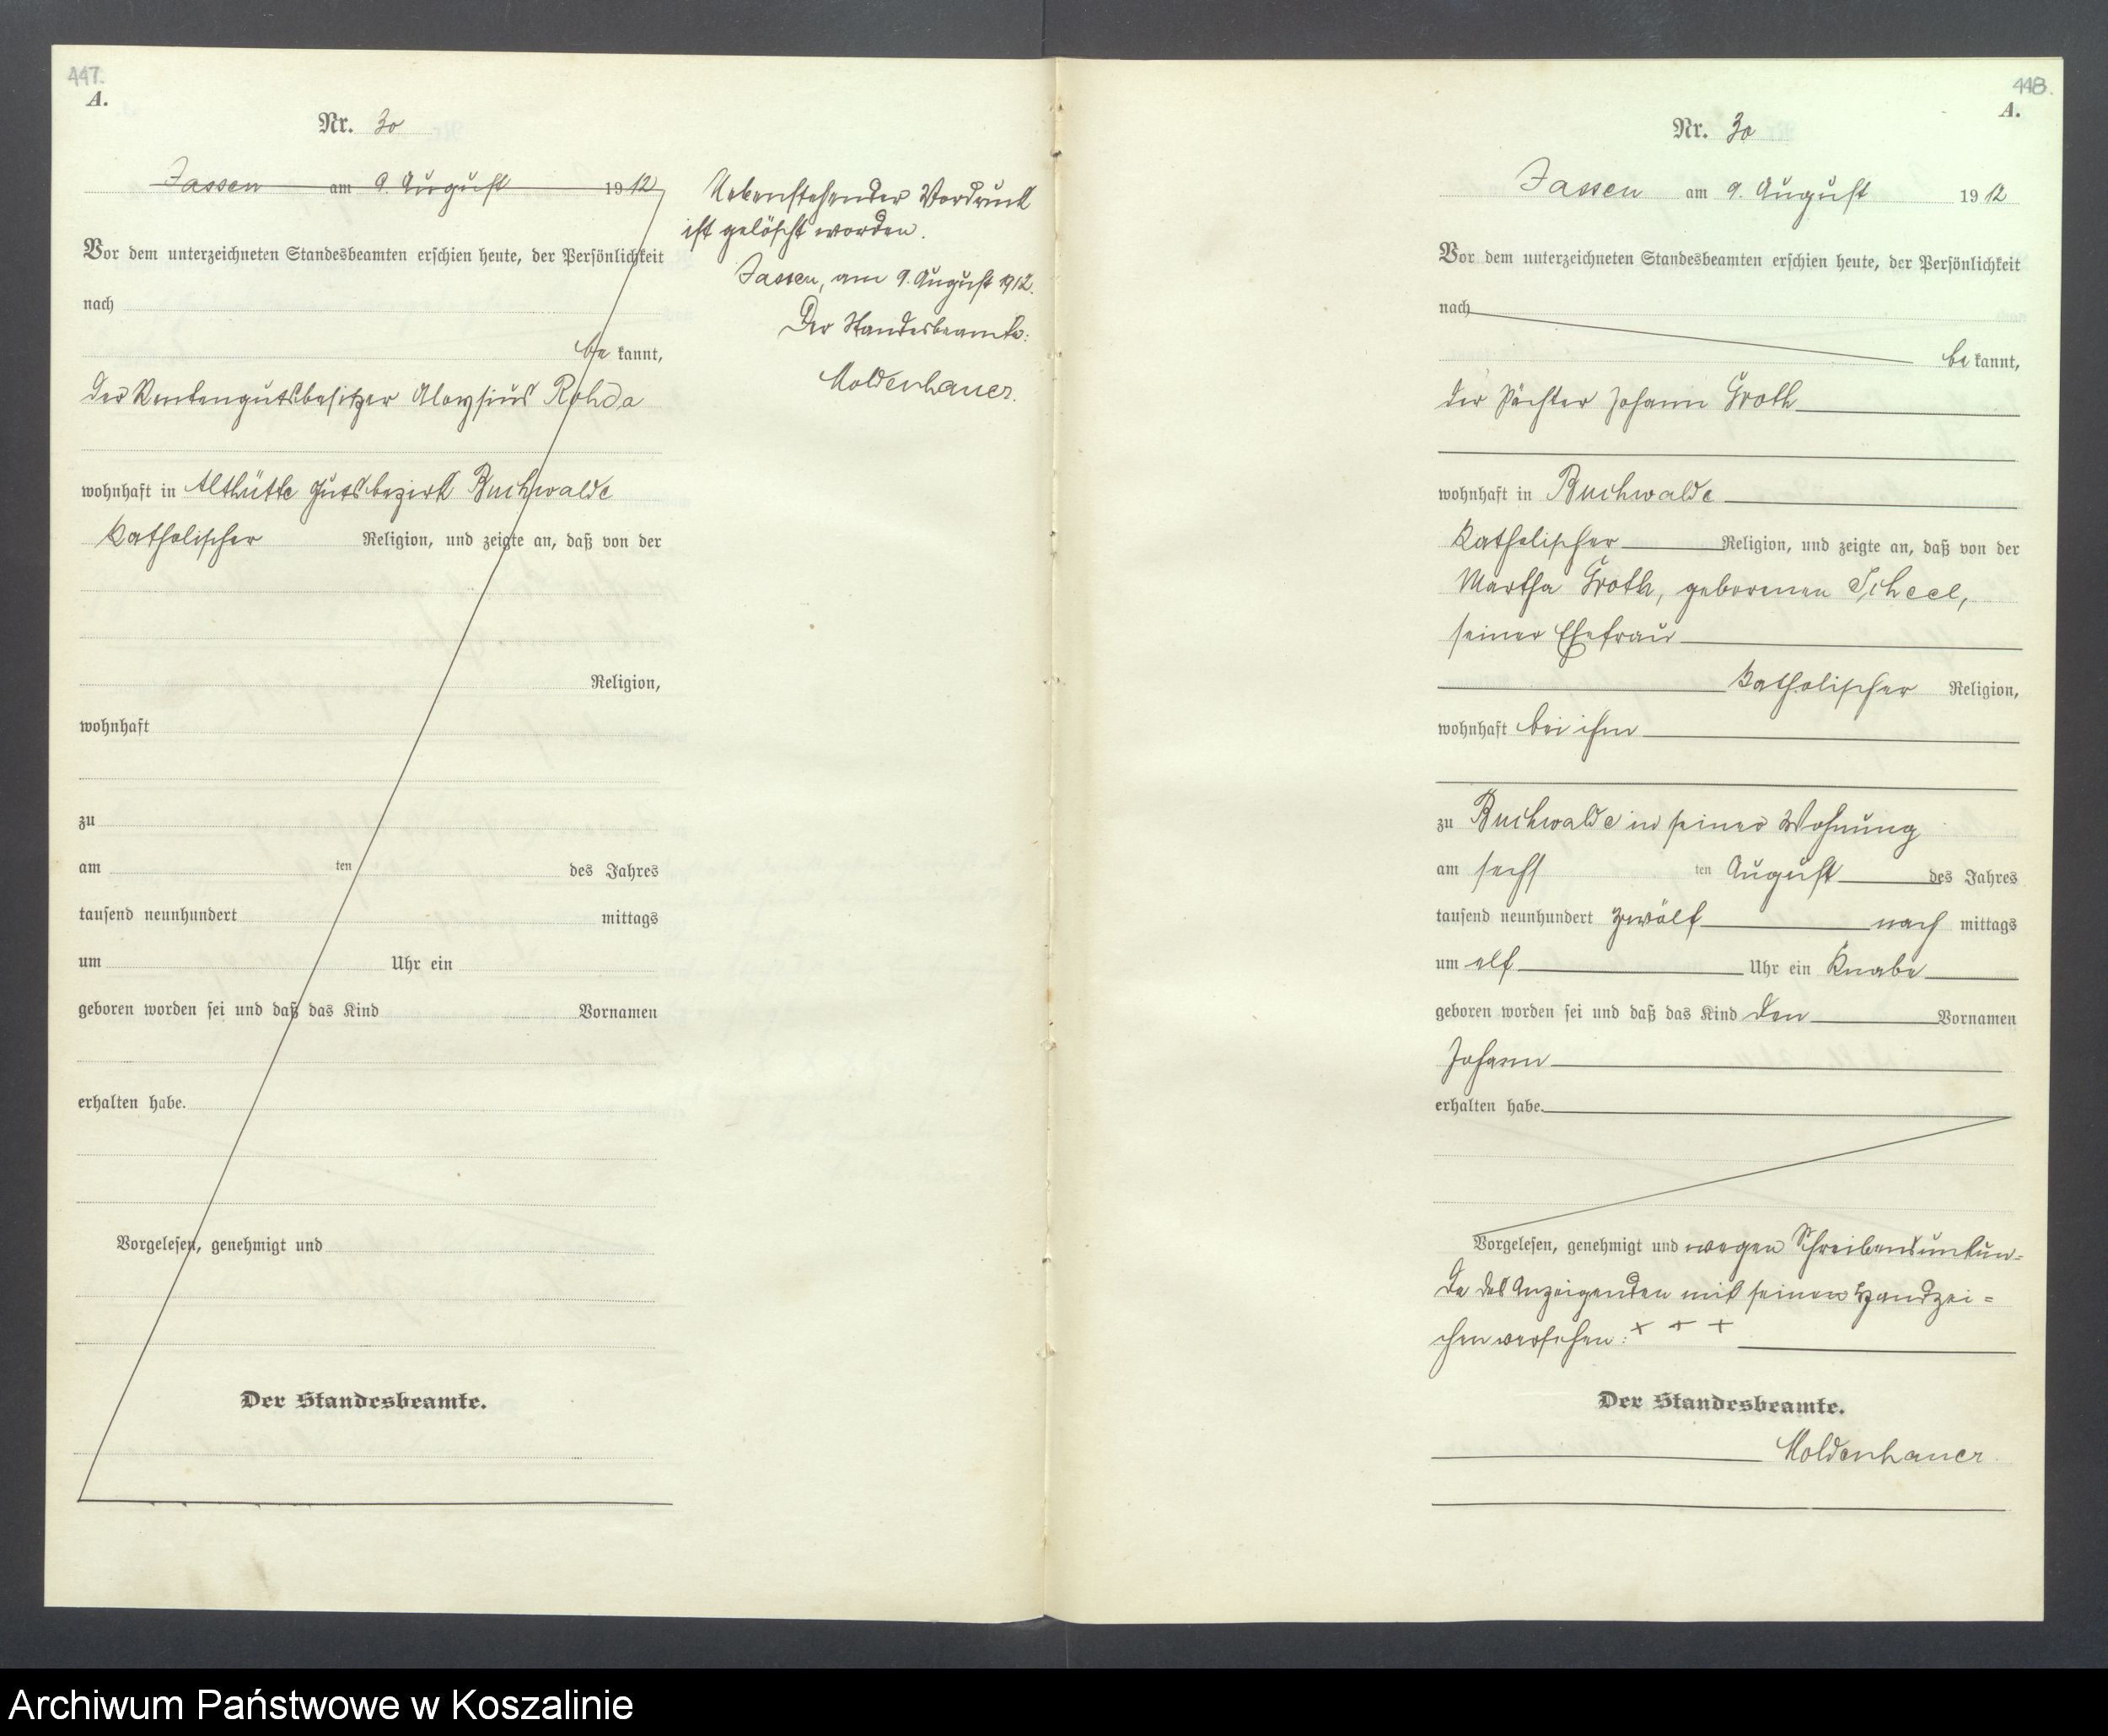 447.
A.
Nr. 30
Jassen am 9. August 1912
Vor dem unterzeichneten Standesbeamten erschien heute, der Persönlichkeit
nach
be kannt,
der Rentengutsbesitzer Aloysius Rohda
wohnhaft in Althütte Gutsbezirk Buchwalde
katholischer Religion, und zeigte an, daß von der
Religion,
wohnhaft
zu
am ten des Jahres
tausend neunhundert mittags
um Uhr ein
geboren worden sei und daß das Kind Vornamen
erhalten habe.
Vorgelesen, genehmigt und
Der Standesbeamte.
Nebenstehender Vordruck
ist gelöscht worden.
Jassen, am 9. August 1912.
Der Standesbeamte:
Moldenhauer.
448.
A.
Nr. 30
Jassen am 9. August 1912
Vor dem unterzeichneten Standesbeamten erschien heute, der Persönlichkeit
nach
be kannt,
der Pächter Johann Groth
wohnhaft in Buchwalde
katholischer Religion, und zeigte an, daß von der
Martha Groth, geborenen Scheel,
seiner Ehefrau
katholischer Religion,
wohnhaft bei ihm
zu Buchwalde in seiner Wohnung
am sechs ten August des Jahres
tausend neunhundert zwölf nach mittags
um elf Uhr ein Knabe
geboren worden sei und daß das Kind den Vornamen
Johann
erhalten habe.
Vorgelesen, genehmigt und wegen Schreibensunkun=
de des Anzeigenden mit seinem Handzei=
chen versehen: + + +
Der Standesbeamte.
Moldenhauer.
Archiwum Państwowe w Koszalinie